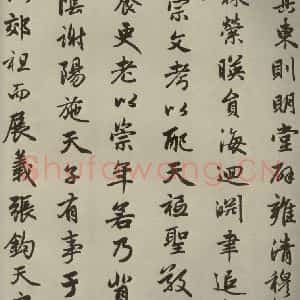 東則明堂辟雍清穆
縈暎員海迴淵聿追
宗文考以配天祗聖敬
養更老以崇年若乃背
陰謝陽施天子有事于
郊祖而展義張鈞天
Shufawang.CN